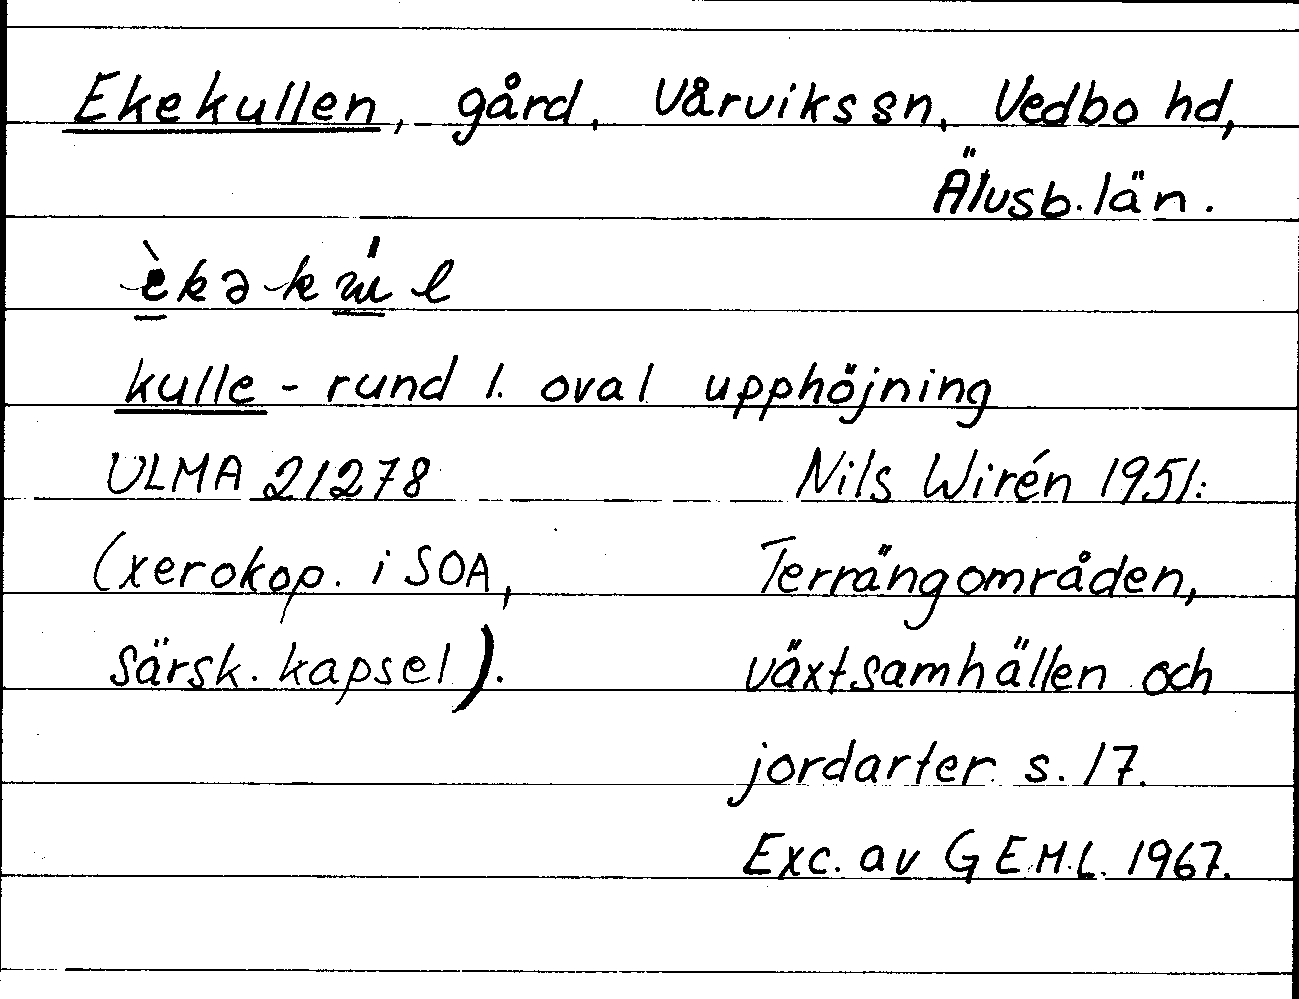 Ekekullen, gård, Vårviks sn, Vedbo hd,
Älvsb. län.
kulle - rund l. oval upphöjning
ULMA 21278 Nils Wirén 1951:
(xerokop. i SOA, Terrängområden,
särsk. kapsel). växtsamhällen och
jordarter s. 17.
Exc. av G E.M.L. 1967.